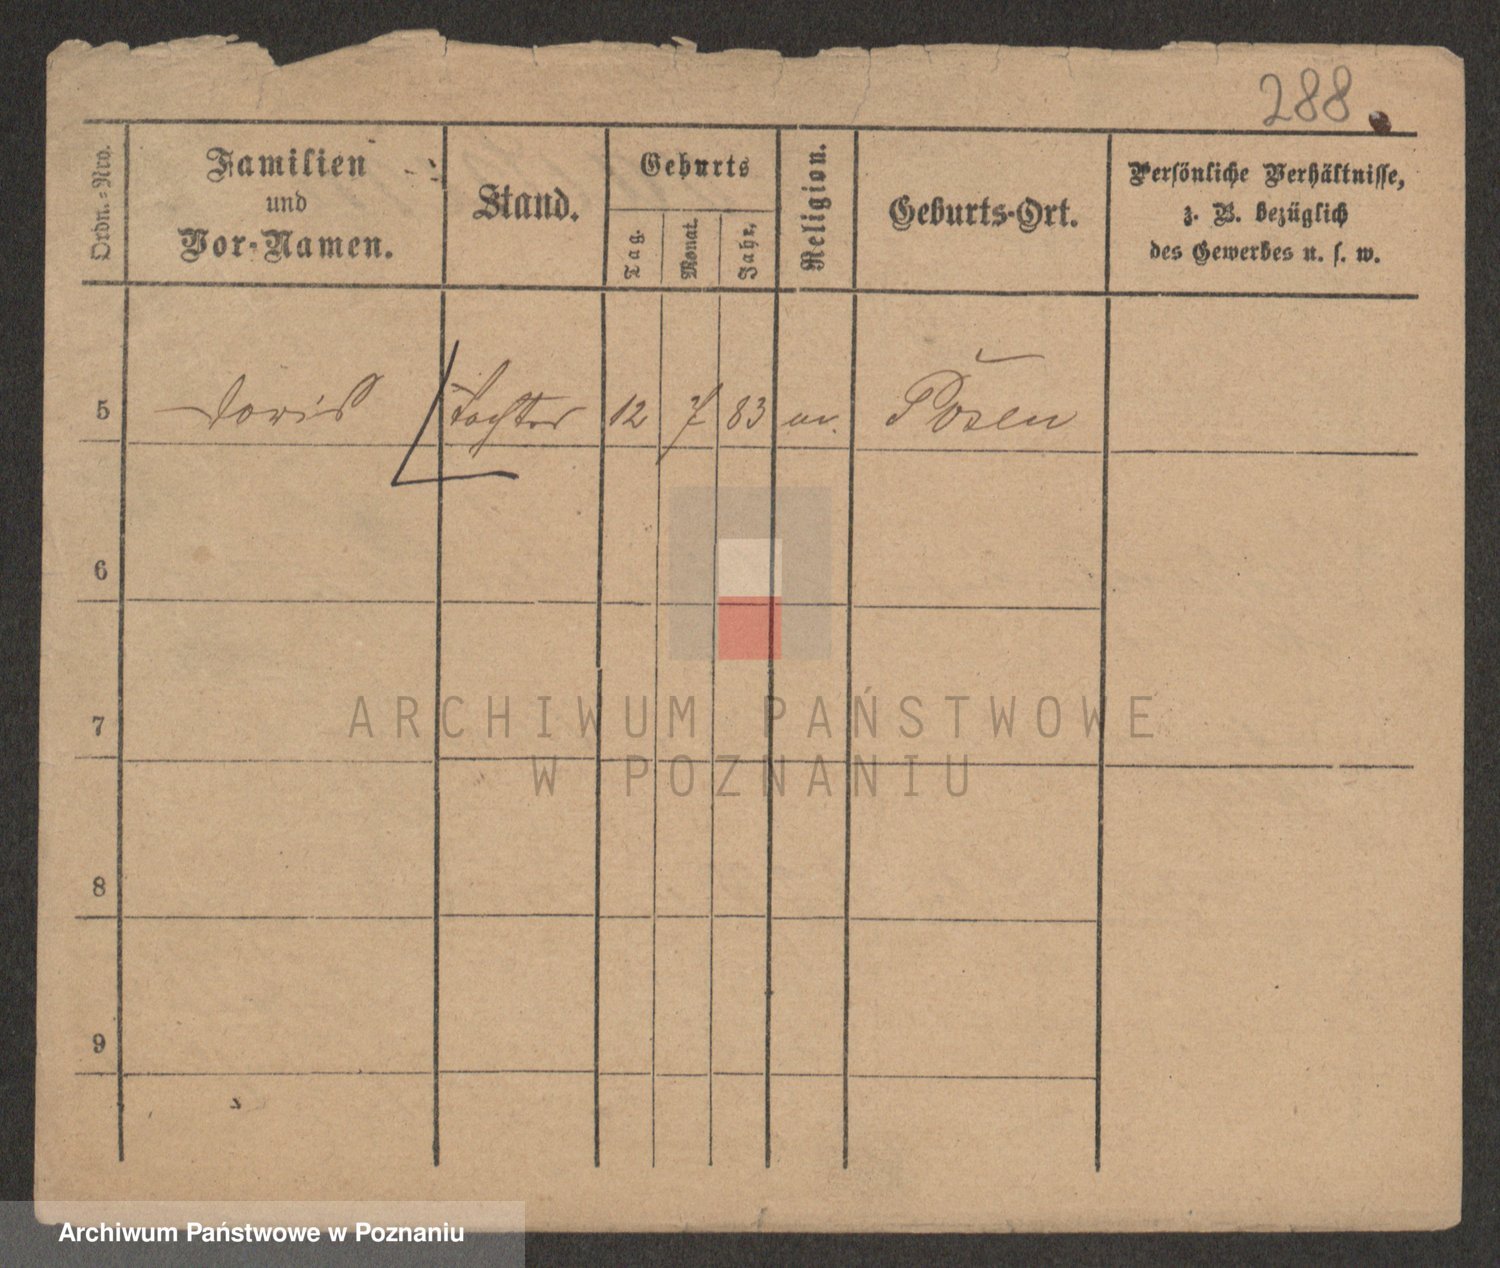 288.
Ordn.-Nro.
Familien
und
Vor-Namen.
Stand.
Geburts
Tag.
Monat.
Jahr.
Religion.
Geburts-Ort.
Persönliche Verhältnisse,
z. B. bezüglich
des Gewerbes u. s. w.
5 Doris Tochter 12 7 83 Posen
6
7
8
9
ARCHIWUM PAŃSTWOWE
W POZNANIU
Archiwum Państwowe w Poznaniu